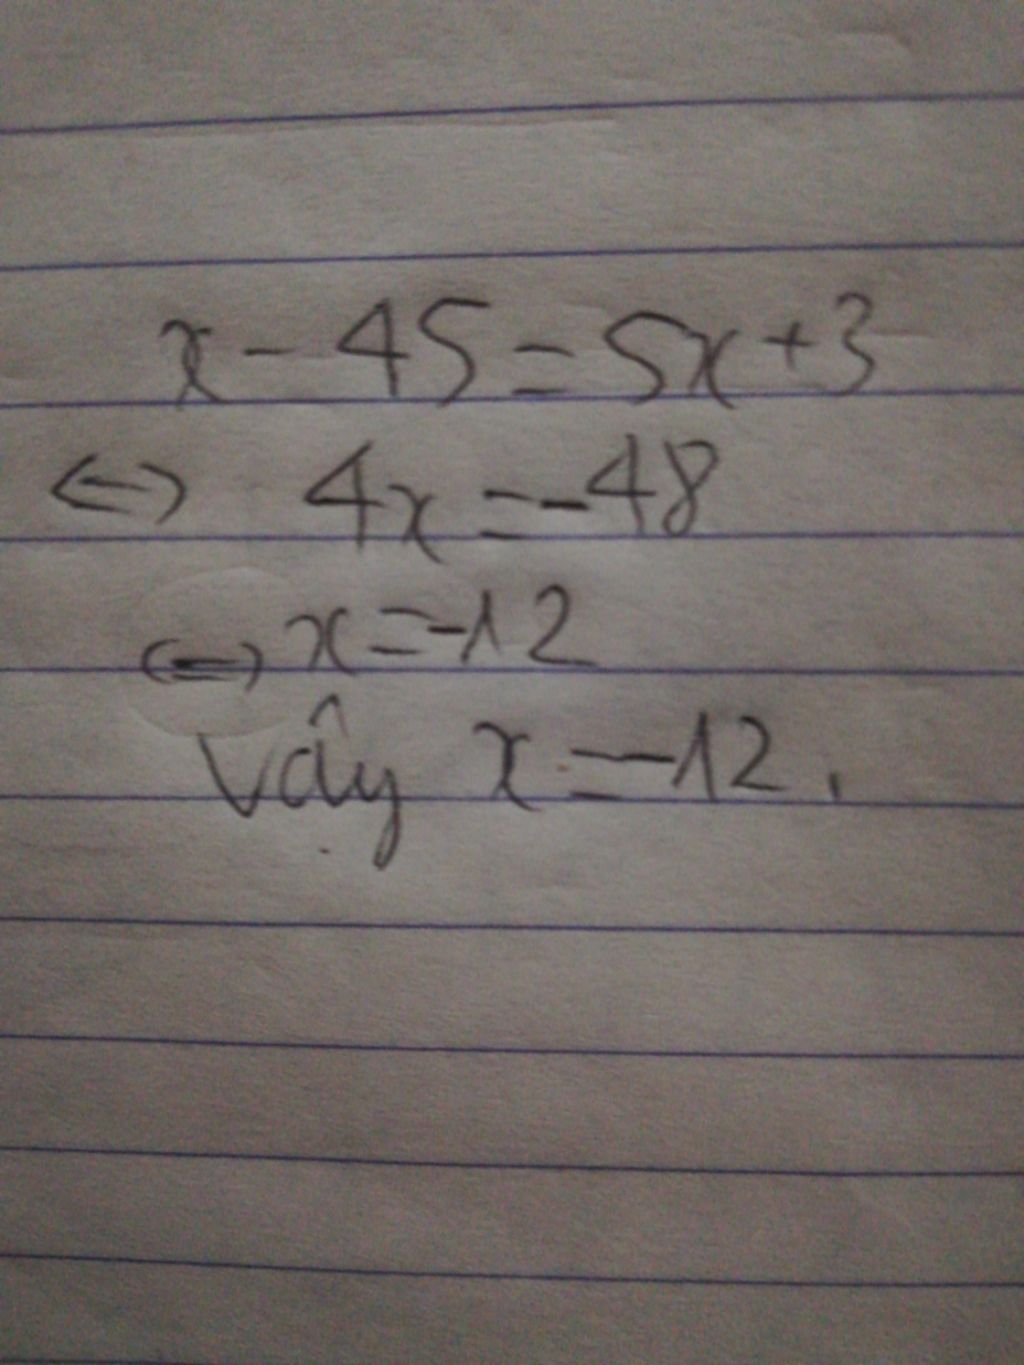 x - 45 = 5x + 3
<=> 4x = -48
<=> x = -12
Vậy x = -12.